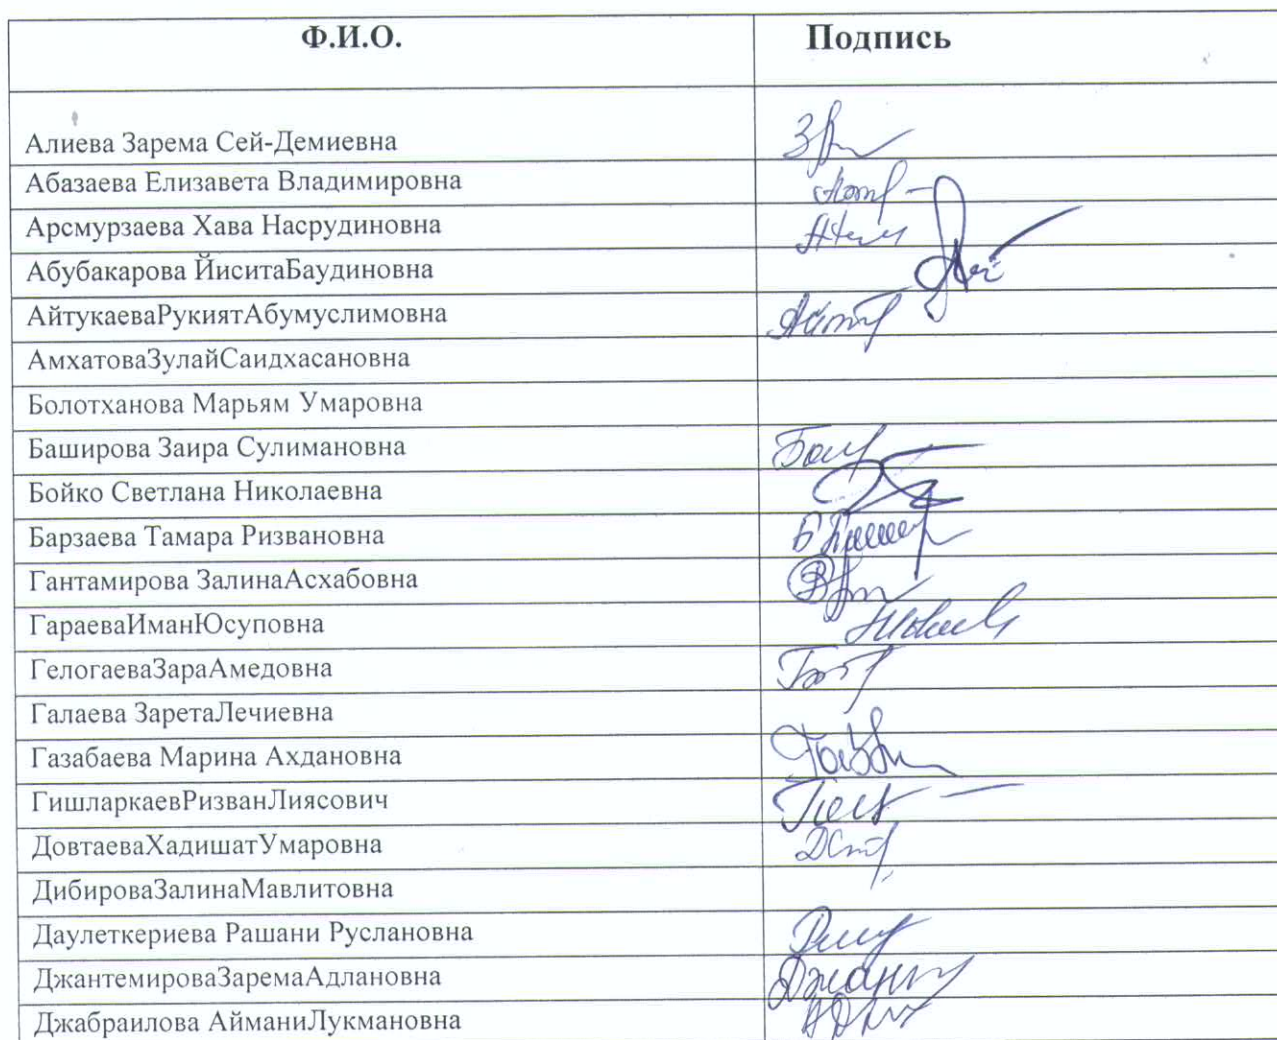 Ф.И.О. Подпись
Алиева Зарема Сей-Демиевна
Абазаева Елизавета Владимировна
Арсмурзаева Хава Насрудиновна
Абубакарова ЙиситаБаудиновна
АйтукаеваРукиятАбумуслимовна
АмхатоваЗулайСаидхасановна
Болотханова Марьям Умаровна
Баширова Заира Сулимановна
Бойко Светлана Николаевна
Барзаева Тамара Ризвановна
Гантамирова ЗалинаАсхабовна
ГараеваИманЮсуповна
ГелогаеваЗараАмедовна
Галаева ЗаретаЛечиевна
Газабаева Марина Ахдановна
ГишларкаевРизванЛиясович
ДовтаеваХадишатУмаровна
ДибироваЗалинаМавлитовна
Даулеткериева Рашани Руслановна
ДжантемироваЗаремаАдлановна
Джабраилова АйманиЛукмановна